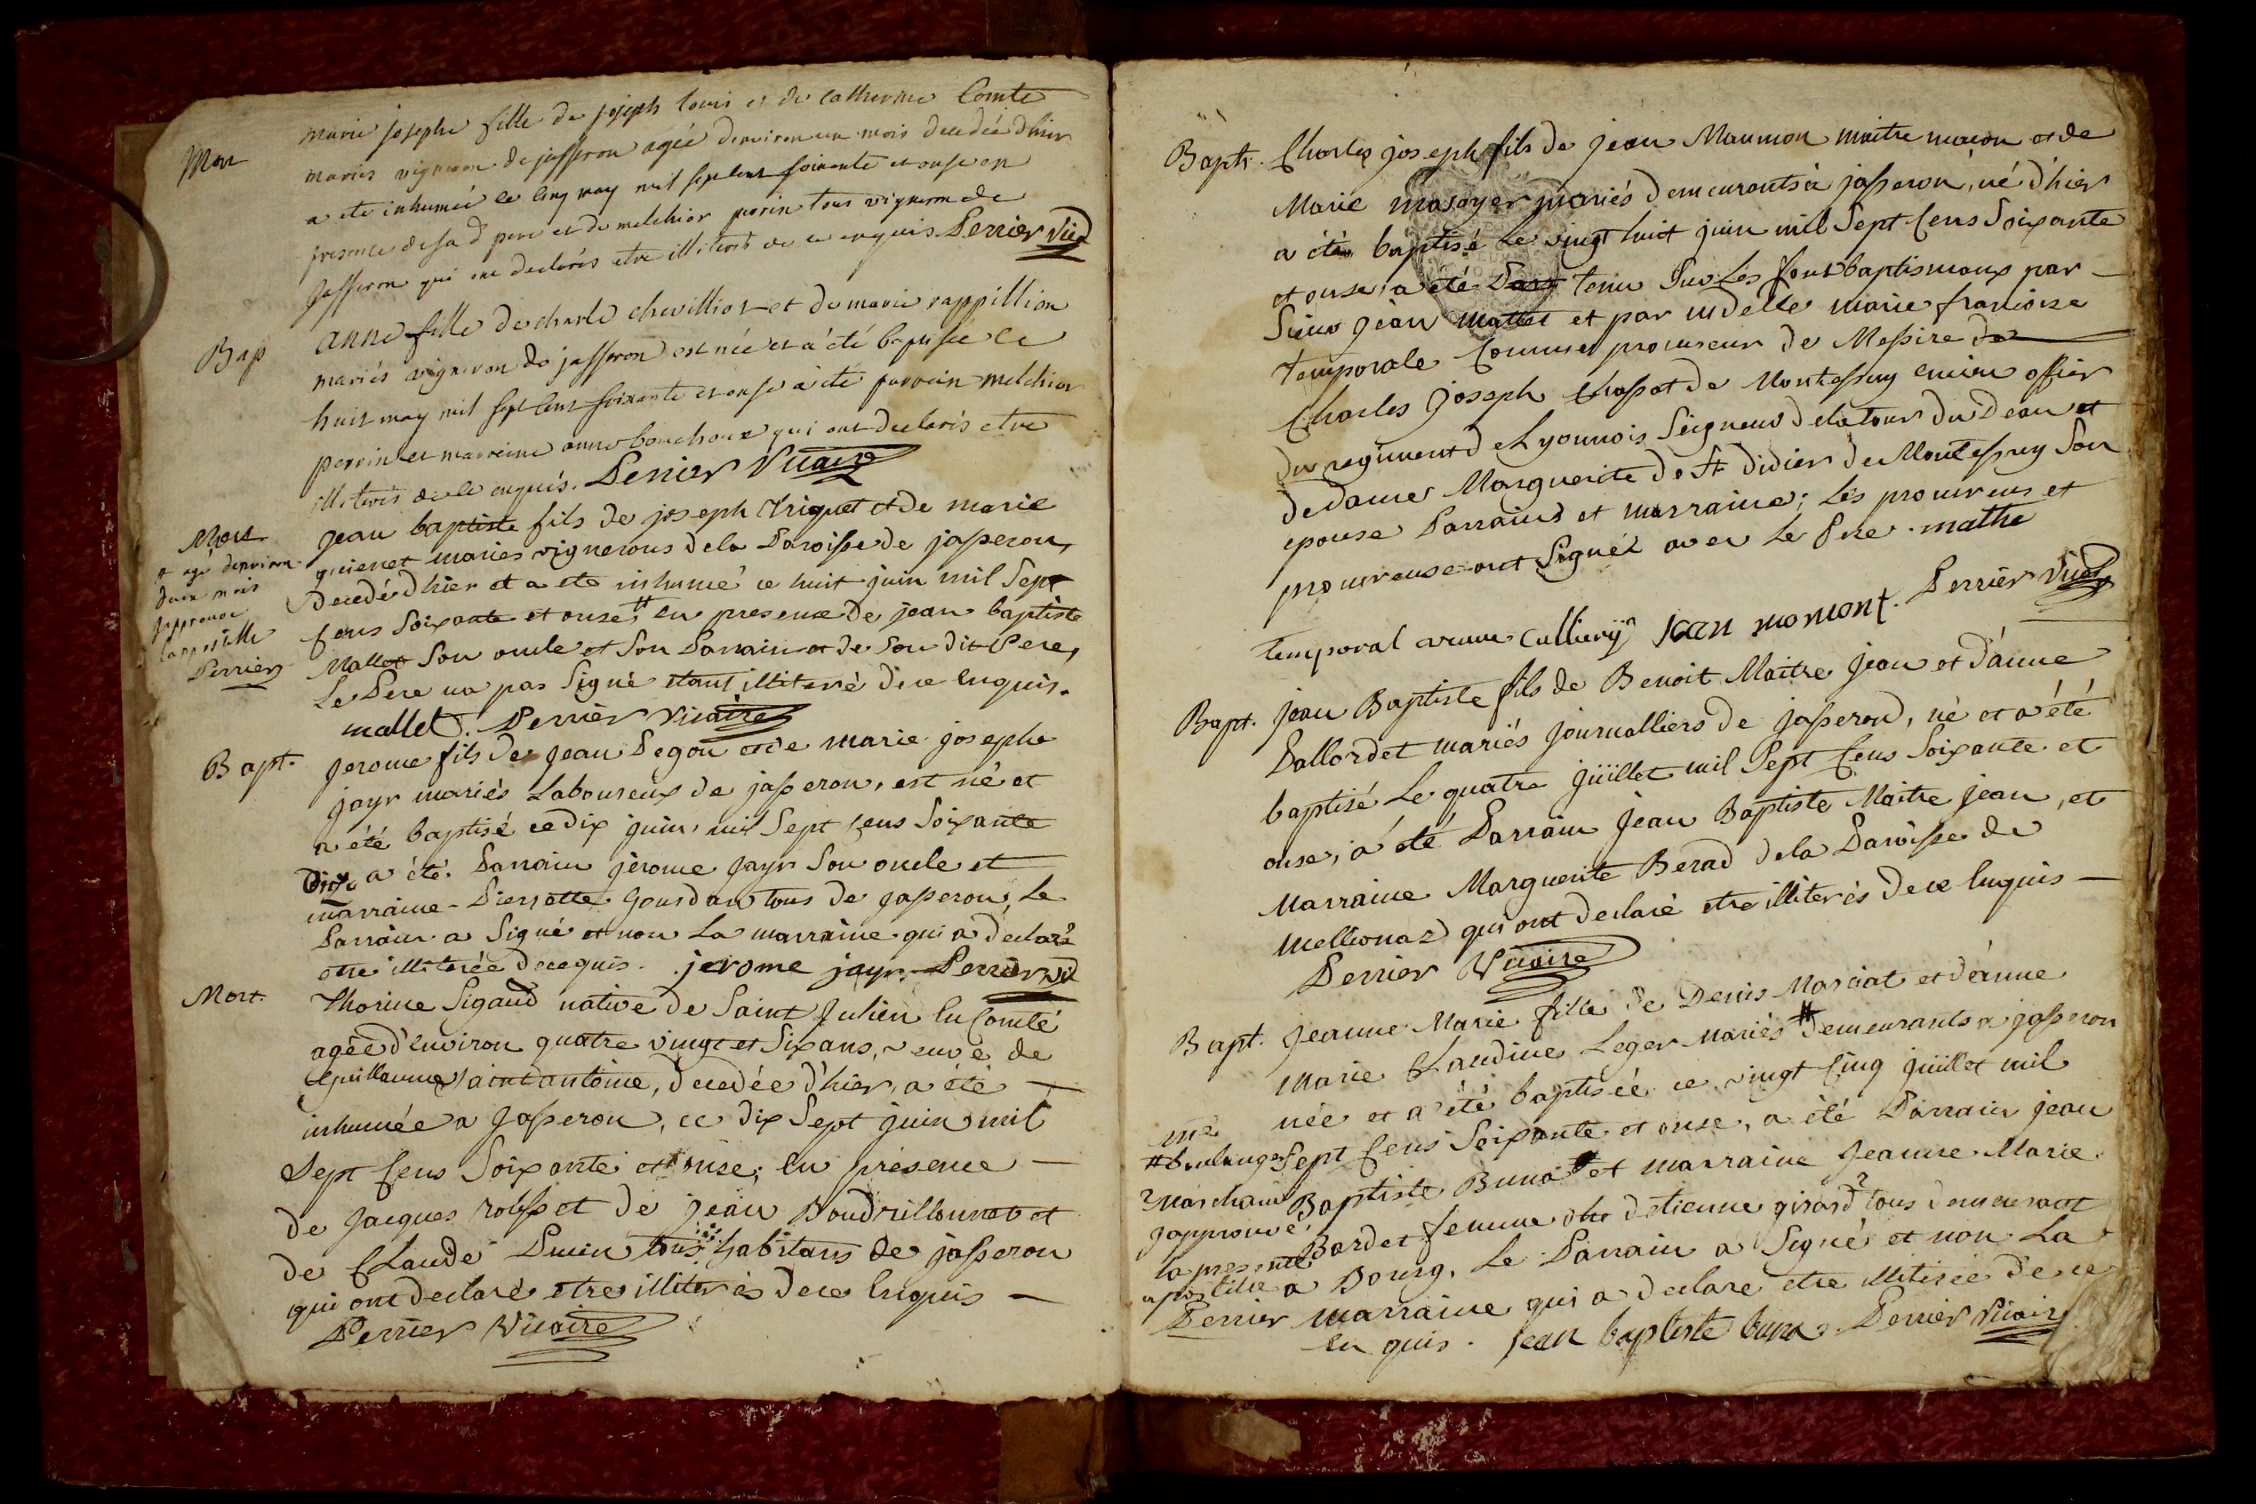 Mor
marie josephe fille de joseph louis et de catherine Comte
mariés vigneron de jasseron agée denviron un mois decedée dhier
a ete inhumée ce cinq may mil sept cent soixante et onse en
presence de sa d pere et de melchior perrin tous vigneron de
Jasseron qui ont declarés etre illiterés de ce enquis. Perrier vic
Bap
anne fille de charle chevillion et de marie rappillion
mariés vigneron de jasseron est née et à été baptisée le
huit may mil sept cent soixante et onse à été parrain melchior
perrin et marraine anne bouchoux qui ont declarés etre
illiterés de ce enquis. Perrier Vicaire
Mort
jean baptiste fils de joseph Triquet et de marie
guienet mariés vignerons dela Paroisse de jasseron,
Decedé d'hier et a ete inhumé ce huit juin mil Sept
Cens Soixante et onse, # en presence de jean baptiste
Mallet Son oncle et Son Parrain et de Son dit Pere,
Le Pere na pas Signé etant illiteré de ce Enquis.
mallet. Perrier Vicaire
# agé denviron
deux mois
japprouve
lapostille
Perrier
Bapt.
jerome fils de jean Pegon et de marie josephe
jayr mariés Laboureux de jasseron, est né et
a été baptisé ce dix juin, mil Sept Cens Soixante
onse a été Parrain jèrome jayr Son oncle et
marraine Pierrotte Gourdan tous de jasseron, Le
Parrain a Signé et non La marraine qui a declaré
etre illiterée de ce quis. jerome jayr. Perrier vic
Mort.
Thorine Sigaud native de Saint Julien En Comté
agée d'Environ quatre vingt et Six ans, veuve de
Guillaume Saint antoine, decedée d'hier, a été
inhumée a jasseron, ce dix Sept juin mil
Sept Cens Soixante et onse; En presence
de jacques rosset de jean Boudrillonnet et
de Claude Pucin tous habitans de jasseron
qui ont declaré etre illiterés de ce Enquis
Perrier Vicaire
Bapt.
Charles joseph fils de jean Maumon maitre maçon et de
Marie masoyer mariés demeurants à jasseron, né d'hier
a été baptisé Le vingt huit juin mil Sept Cens Soixante
et onse, a été tenu Sur Les fonts baptismaux par
Sieur jean mattet et par mdelle marie francoise
Temporale Comme procureur de Messire de
Charles joseph Chossat de Montessuy encien officier
du regiment de Lyonnois Seigneur de la tour du Dean et
de dame Marguerite de St Didier de Montessuy Son
epouse Parrains et marraine; Les procureurs et
procureuse ont Signé avec Le Pere. mathe
temporal arnum culliery jean momont. Perrier Vic
Bapt.
jean Baptiste fils de Benoit Maitre jean et d'anne
Pallordet mariés journalliers de jasseron, né et a été
baptisé Le quatre juïllet mil Sept Cens Soixante et
onse, à été Parrain jean Baptiste Maitre jean, et
Marraine Marguerite Berad dela Paroisse de
Mellionaz qui ont declaré etre illiterés de ce Enquis
Perrier Vicaire
Bapt.
jeanne Marie fille de Denis Marciat et d'anne
marie Claudine Leger mariés # demeurants a jasseron
née et a été baptisée ce vingt Cinq juïllet mil
Sept Cens Soixante et onse, a été Parrain jean
Baptiste Buna et marraine jeanne Marie
Bardet femme d'etienne girard 2 tous demeurant
a Bourg, Le Parrain a Signé et non La
marraine qui a declare etre illiterée de ce
En quis. jean baptiste buna. Perrier Vicaire
me
# boulanger
2 marchand
japprouve
la presente
apostille
Perrier